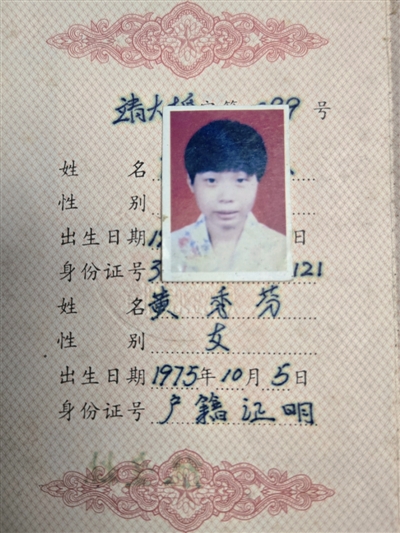 靖大 字第 099 号
姓 名
性 别
出生日期 19 日
身份证号 3 121
姓 名 黄秀芬
性 别 女
出生日期 1975年10月5日
身份证号 户籍证明